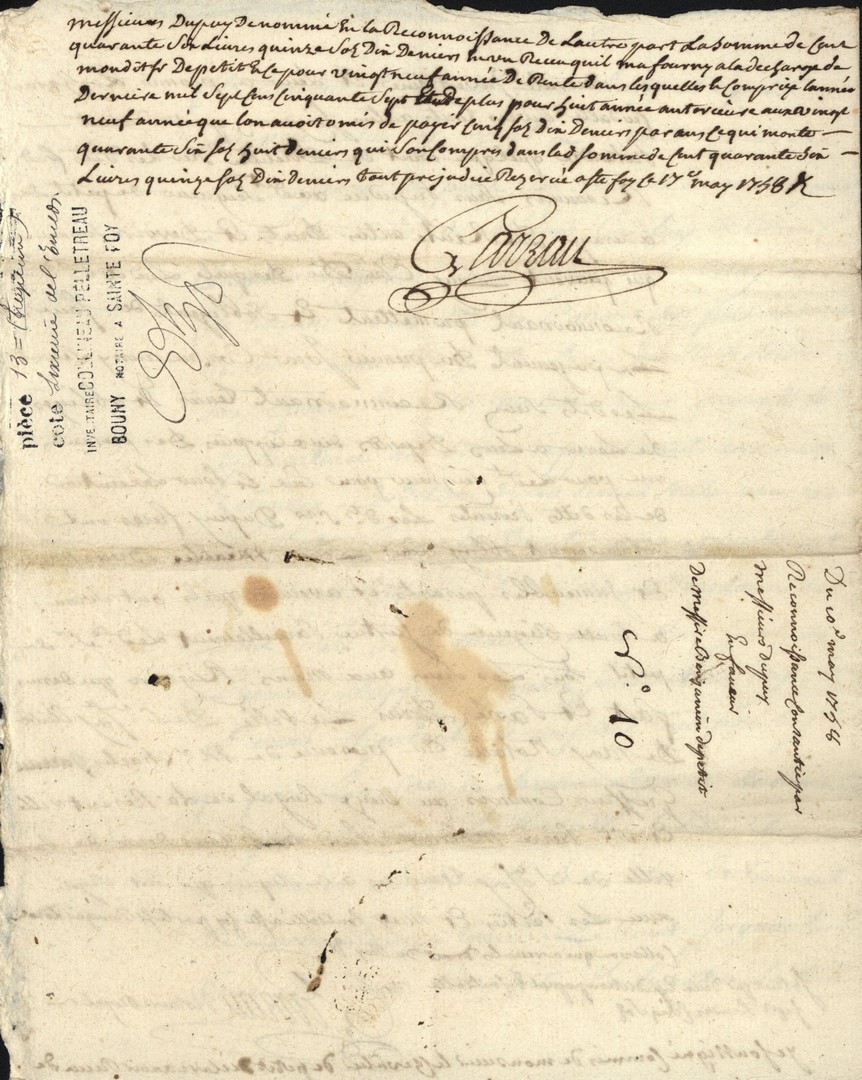 messieurs Dupuy Denommé En la Reconnoissance De Lautre part La somme de Cent
quarante Six Livres quinze sols Dix Deniers
monditsr Depetit Et ce pour vingt neuf année de Rente dans les quelles le Compris lannée
Derniere mil Sept Cens Cinquante Sept plus pour huit année anterieure aux vingt
neuf année que lon avoit omis de payer Cinq sols Dix Deniers par ans Ce qui monte
quarante Six sols huit deniers qui Son Compris dans lad somme de Cent quarante Six
Livres quinze sols Dix deniers tout prejudice Rezervé a ste foy le 17e may 1758
Carzau
pièce 13=
cote
INVENTAIRE COLLINEAU PELLETREAU
BOUNY NOTAIRE A SAINTE FOY
Du 10e may 1758
Reconnoissance Consantie par
messieurs Dupuy
En faveur
De messire Benjamin Depetit
N.° 10